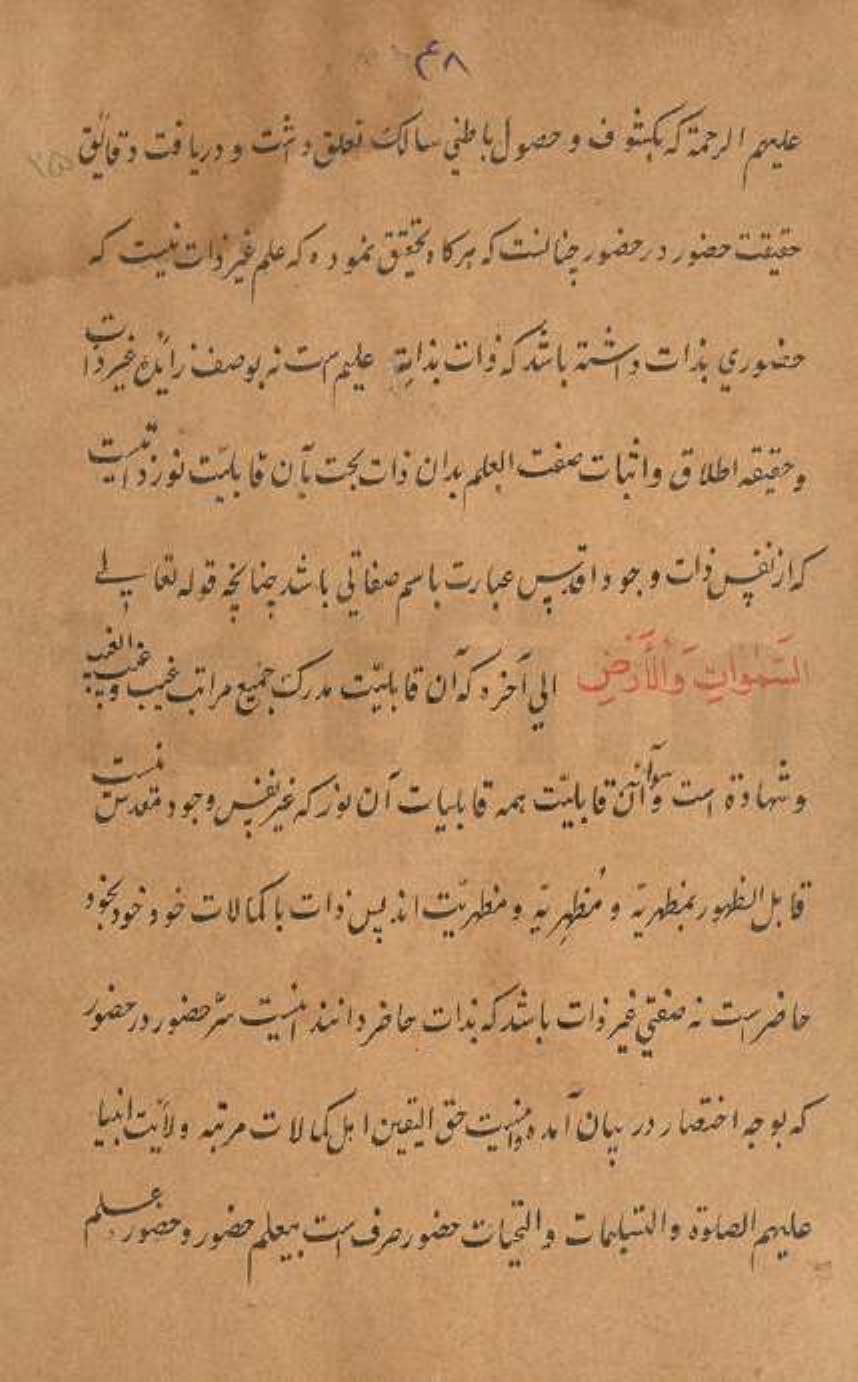 ۴۸
علیهم الرحمة که بکشوف و حصول باطنی سالک تعلق داشت و دریافت دقائق
حقیقت حضور در حضور چنانست که هرکاه تحقیق نموده که علم غیر ذات نیست که
حضوري بذات داشته باشد که ذات بذاته علیم است نه بوصف زائد غیر ذات
و حقیقه اطلاق و اثبات صفت العلم بدان ذات بحت بآن قابلیّت نور ذاتیست
که از نفس ذات و جود اقدس عبارت باسم صفاتی باشد چنانچه قوله تعالے
السَّمٰوَاتِ وَالْأَرْضِ الی آخره که آن قابلیّت مدرک جمیع مراتب غیب و غیب الغیب
و شهادة است و آن قابلیّت همه قابلیات آن نور که غیر نفس وجود مقدس نیست
قابل الظهور بمظهریّة و مُظهِریّة و مظهریّت اند پس ذات با کمالات خود خود بخود
حاضر است نه صفتی غیر ذات باشد که بذات حاضر دانند اینست سرّ حضور در حضور
که بوجه اختصار در بیان آمده و اینست حق الیقین اهل کمالات مرتبه ولایت انبیا
علیهم الصلوة والتسلیمات والتحیات حضور صرف است بیعلم حضور و حضور علم